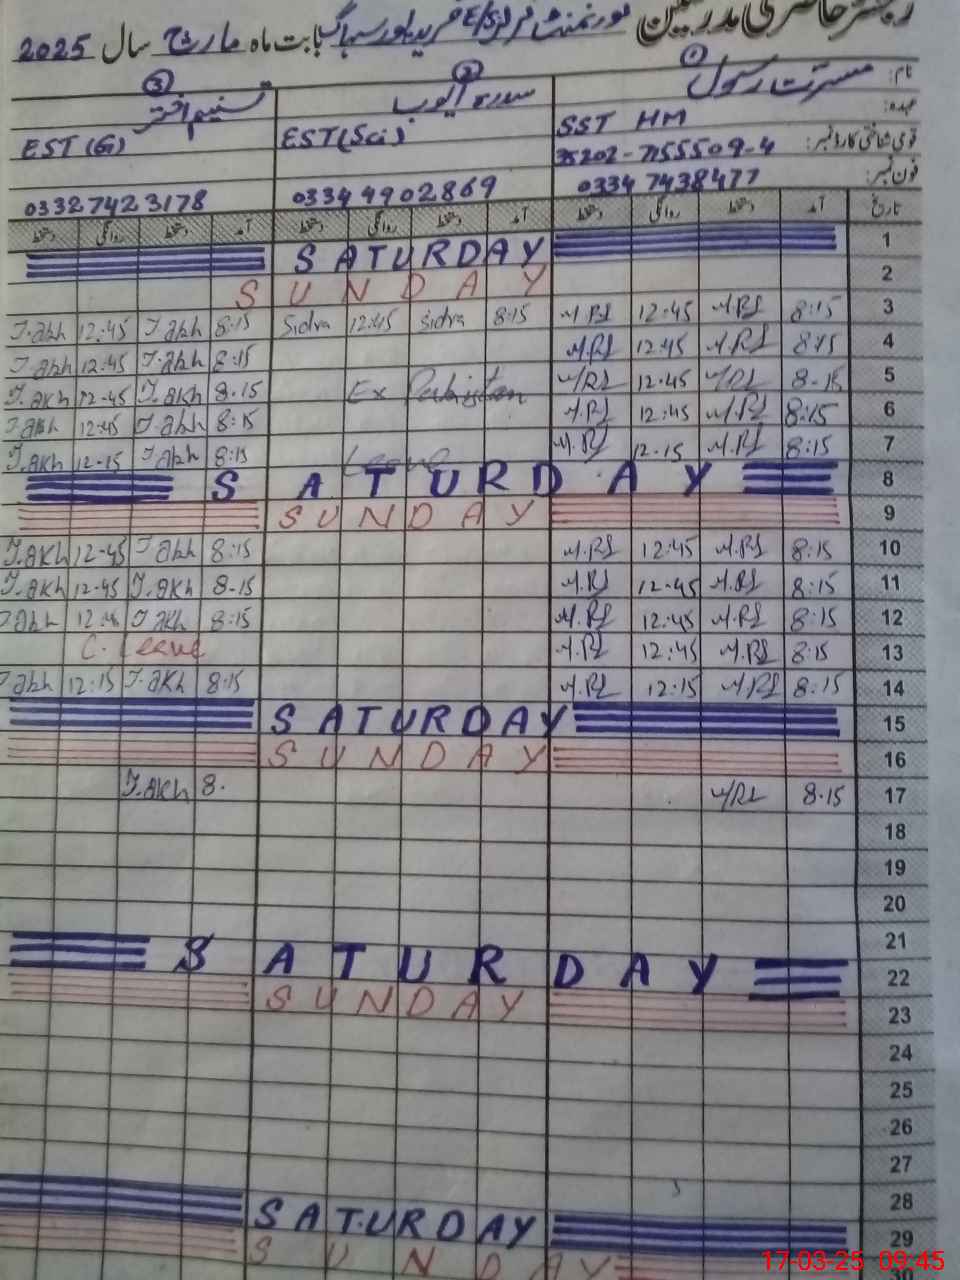 رجسٹر حاضری مدرسین گورنمنٹ گرلز E/S فرید پور سہاگ بابت ماہ مارچ سال 2025
نام: ① مسرت رسول ② سدرہ ایوب ③ تسنیم اختر
عہدہ: SST HM EST (Sci) EST (G)
قومی شناختی کارڈ نمبر: 35202-7155509-4
فون نمبر: 0334 7438477 0334 4902869 0332 7423178
تاریخ آمد دستخط روانگی دستخط آمد دستخط روانگی دستخط آمد دستخط روانگی دستخط
SATURDAY 1
SUNDAY 2
T.akh 12:45 T.akh 8:15 Sidra 12:45 Sidra 8:15 M.RS 12:45 M.RS 8:15 3
T.akh 12:45 T.akh 8:15 M.RS 12:45 M.RS 8:15 4
T.akh 12-45 T.akh 8.15 Ex Pakistan M/RS 12-45 M/RS 8-15 5
T.akh 12:45 T.akh 8:15 M.RS 12:45 M.RS 8:15 6
T.akh 12-15 T.akh 8:15 Leave M.RS 12-15 M.RS 8:15 7
SATURDAY 8
SUNDAY 9
T.akh 12-45 T.akh 8:15 M.RS 12:45 M.RS 8:15 10
T.akh 12-45 T.akh 8-15 M.RS 12-45 M.RS 8:15 11
T.akh 12:4 T.akh 8:15 M.RS 12:45 M.RS 8:15 12
C. Leave M.RS 12:45 M.RS 8:15 13
T.akh 12:15 T.akh 8:15 M.RS 12:15 M.RS 8:15 14
SATURDAY 15
SUNDAY 16
T.akh 8. M/RS 8.15 17
18
19
20
21
SATURDAY 22
SUNDAY 23
24
25
26
27
28
SATURDAY 29
SUNDAY 30
17-03-25 09:45